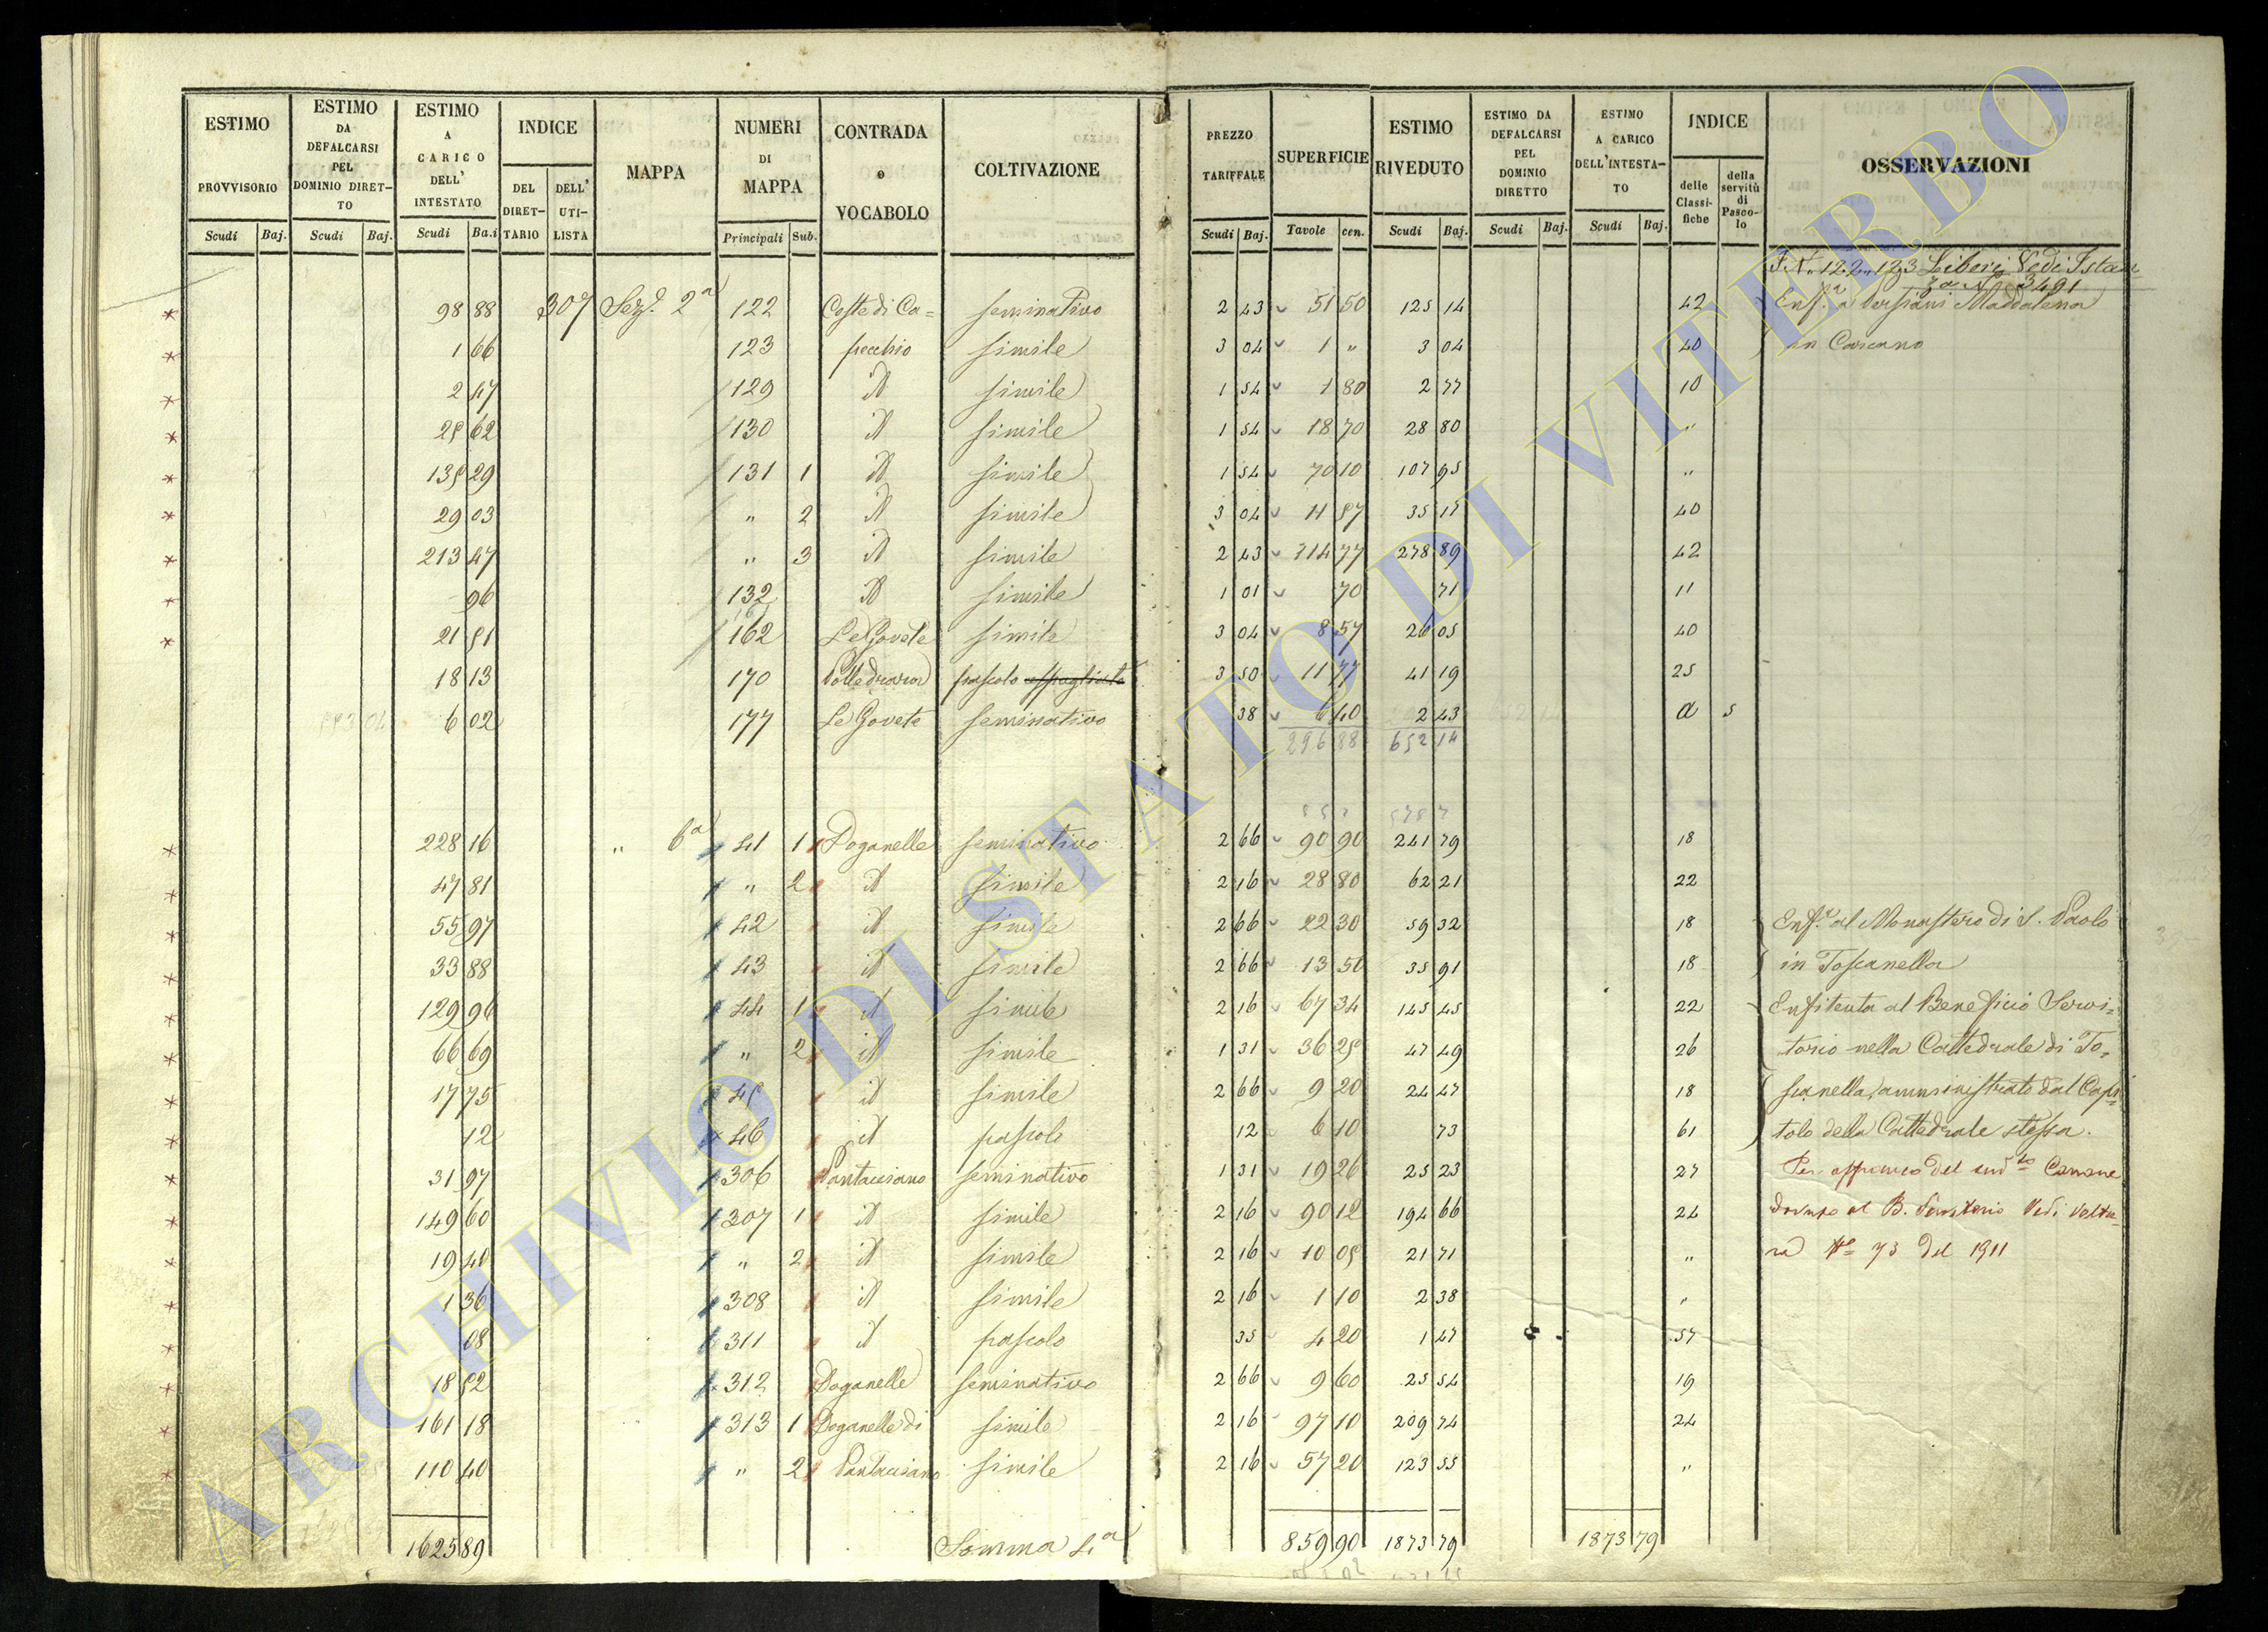 ESTIMO PROVVISORIO Scudi Baj. | ESTIMO DA DEFALCARSI PEL DOMINIO DIRET- TO Scudi Baj. | ESTIMO A CARICO DELL' INTESTATO Scudi Ba.i | INDICE DEL DIRET- TARIO DELL' UTI- LISTA | MAPPA | NUMERI DI MAPPA Principali Sub. | CONTRADA e VOCABOLO | COLTIVAZIONE | PREZZO TARIFFALE Scudi Baj. | SUPERFICIE Tavole cen. | ESTIMO RIVEDUTO Scudi Baj. | ESTIMO DA DEFALCARSI PEL DOMINIO DIRETTO Scudi Baj. | ESTIMO A CARICO DELL'INTESTA- TO Scudi Baj. | INDICE delle Classi- fiche della servitù di Pasco- lo | OSSERVAZIONI
122 123 Liberi Vedi Istan
za N. 3491
98 88 307 Sez. 2a 122 Coste di Ca= seminativo 2 43 51 50 125 14 42 Enf. a Maddalena
1 66 123 pecchio simile 3 04 1 " 3 04 40 in Carcano
2 47 129 id simile 1 54 1 80 2 77 10
25 62 130 id simile 1 54 18 70 28 80 "
135 29 131 1 id simile 1 54 70 10 107 95 "
29 03 " 2 id simile 3 04 11 57 35 17 40
213 47 " 3 id simile 2 43 114 77 278 89 42
96 132 id simile 1 01 70 71 11
21 51 162 Le Govete simile 3 04 8 57 26 05 40
18 13 170 Polledrara pascolo 3 50 11 77 41 19 25
6 02 177 Le Govete seminativo 38 6 40 2 43 a 5
296 88 652 14
228 16 " 6a 41 1 Doganelle seminativo 2 66 90 90 241 79 18
47 81 " 2 id simile 2 16 28 80 62 21 22
55 97 42 id simile 2 66 22 30 59 32 18 Enf. al Monastero di S. Paolo
33 88 43 id simile 2 66 13 50 35 91 18 in Toscanella
129 96 44 1 id simile 2 16 67 34 145 45 22 Enfiteuta al Beneficio Servi=
66 69 " 2 id simile 1 31 36 25 47 49 26 torio nella Cattedrale di To=
17 75 45 id simile 2 66 9 20 24 47 18 scanella, amministrato dal Capi=
12 46 id pascolo 12 6 10 73 61 tolo della Cattedrale stessa.
31 97 306 Pantacciano seminativo 1 31 19 26 25 23 27 Per affranco del sud.to Canone
149 60 307 1 id simile 2 16 90 12 194 66 24 dovuto al B. Vedi Voltu-
19 40 " 2 id simile 2 16 10 05 21 71 " ra N. 73 del 1911
1 36 308 id simile 2 16 1 10 2 38 "
08 311 id pascolo 35 4 20 1 47 57
18 52 312 Doganelle seminativo 2 66 9 60 25 54 19
161 18 313 1 Doganelle di simile 2 16 97 10 209 74 24
110 40 " 2 Pantacciano simile 2 16 57 20 123 55 "
1625 89 Somma 4a 859 90 1873 79 1873 79
ARCHIVIO DI STATO DI VITERBO